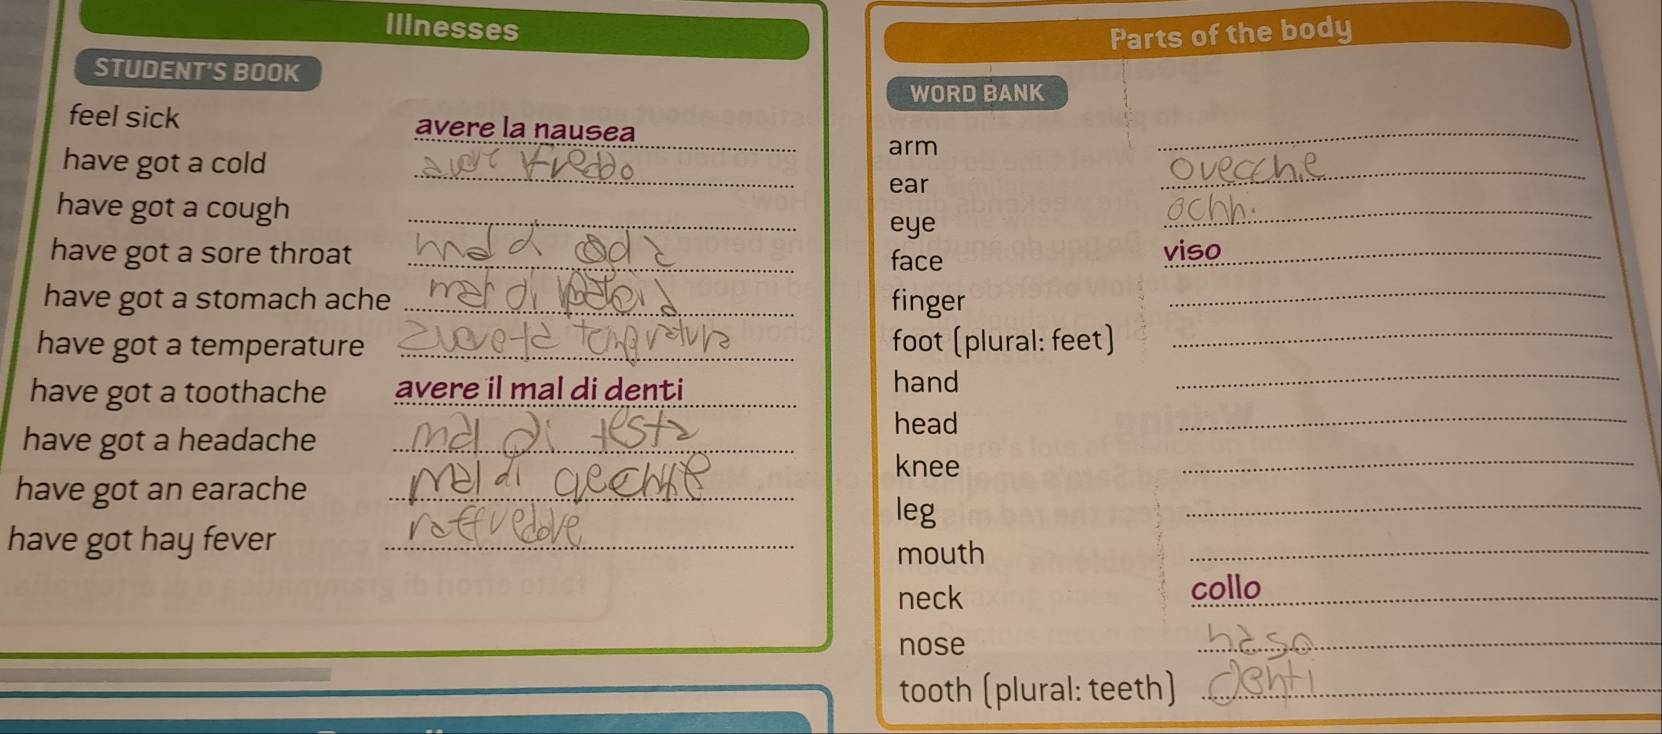 Illnesses
STUDENT'S BOOK
feel sick avere la nausea
have got a cold avere freddo
have got a cough
have got a sore throat mal di
have got a stomach ache mal di
have got a temperature
have got a toothache avere il mal di denti
have got a headache mal di testa
have got an earache mal di
have got hay fever
Parts of the body
WORD BANK
arm
ear
eye
face viso
finger
foot (plural: feet)
hand
head
knee
leg
mouth
neck collo
nose naso
tooth (plural: teeth) denti